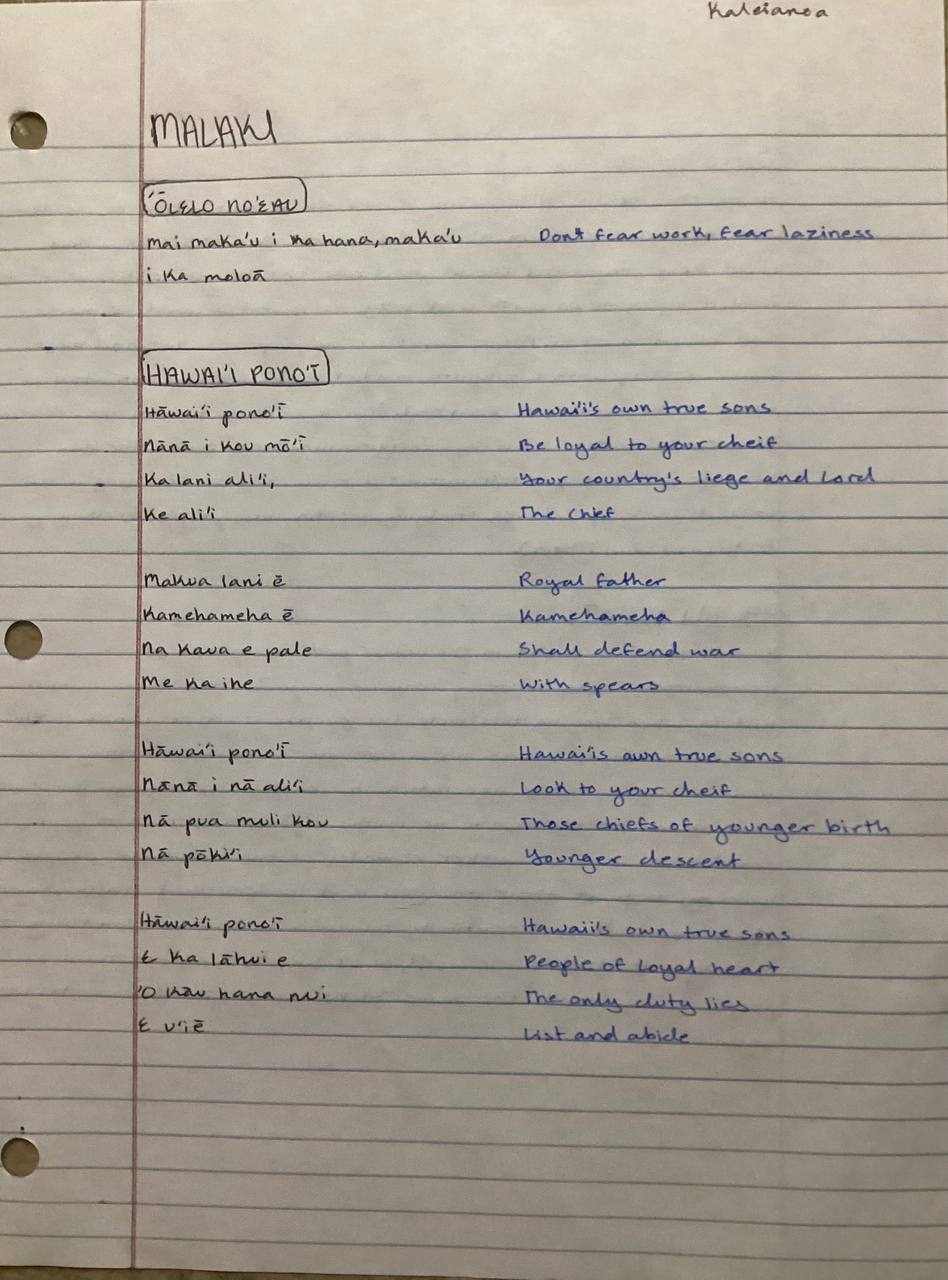 Kaleianoa
MALAKI
ʻŌLELO NOʻEAU
mai makaʻu i ka hana, makaʻu Don't fear work, fear laziness
i ka moloā
HAWAIʻI PONOʻĪ
Hāwaiʻi ponoʻī Hawaiʻi's own true sons
nānā i kou mōʻī Be loyal to your cheif
Ka lani aliʻi, Your country's liege and Lord
Ke aliʻi The Chief
Makua lani ē Royal father
Kamehameha ē Kamehameha
na kaua e pale Shall defend war
me ka ihe With spears
Hāwaiʻi ponoʻī Hawaiʻis own true sons
nānā i nā aliʻi Look to your cheif
nā pua muli kou Those chiefs of younger birth
nā pōkiʻi Younger descent
Hāwaiʻi ponoʻī Hawaii's own true sons
E ka lāhui e People of loyal heart
ʻO kāu hana nui The only duty lies
E uʻiē List and abide